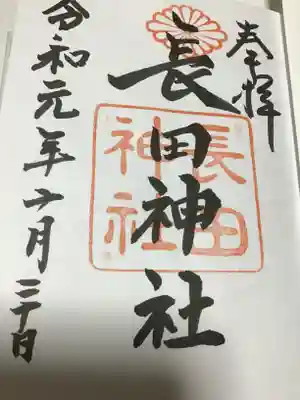 奉拝
長田神社
長田
神社
令和元年
月三十日